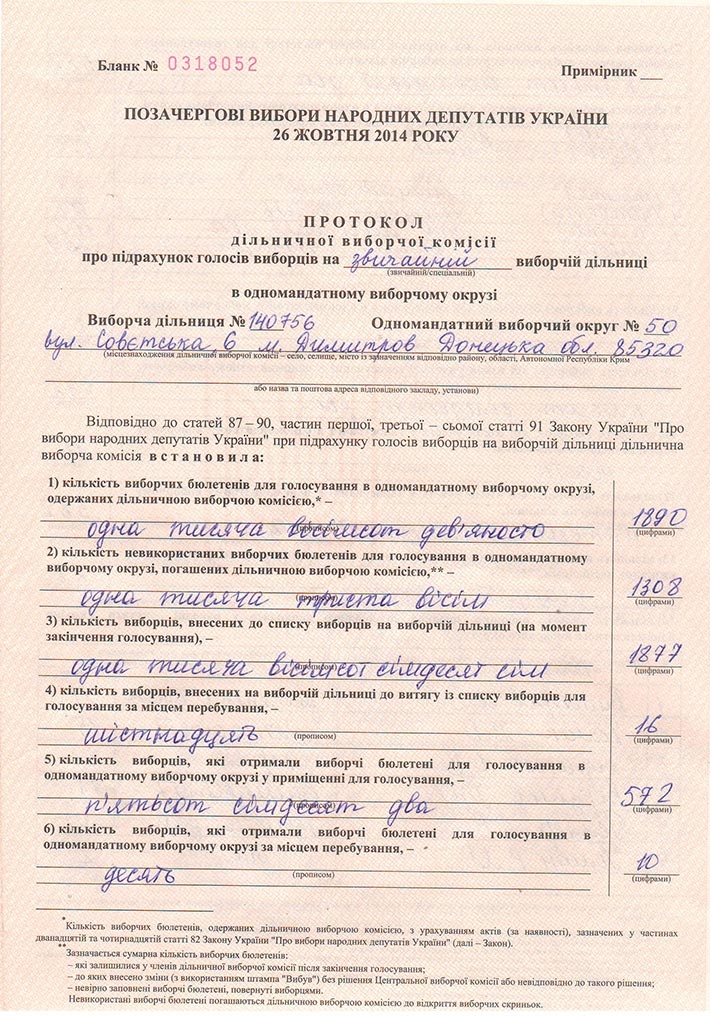 Бланк № 0318052
Примірник ___
ПОЗАЧЕРГОВІ ВИБОРИ НАРОДНИХ ДЕПУТАТІВ УКРАЇНИ
26 ЖОВТНЯ 2014 РОКУ
ПРОТОКОЛ
дільничної виборчої комісії
про підрахунок голосів виборців на звичайній виборчій дільниці
(звичайній/спеціальній)
в одномандатному виборчому окрузі
Виборча дільниця № 140756 Одномандатний виборчий округ № 50
вул. Совєтська, 6 м. Димитров Донецька обл. 85320
(місцезнаходження дільничної виборчої комісії – село, селище, місто із зазначенням відповідно району, області, Автономної Республіки Крим
або назва та поштова адреса відповідного закладу, установи)
Відповідно до статей 87 – 90, частин першої, третьої – сьомої статті 91 Закону України "Про
вибори народних депутатів України" при підрахунку голосів виборців на виборчій дільниці дільнична
виборча комісія встановила:
1) кількість виборчих бюлетенів для голосування в одномандатному виборчому окрузі,
одержаних дільничною виборчою комісією,* –
одна тисяча вісімсот дев'яносто 1890
(прописом) (цифрами)
2) кількість невикористаних виборчих бюлетенів для голосування в одномандатному
виборчому окрузі, погашених дільничною виборчою комісією,** –
одна тисяча триста вісім 1308
(прописом) (цифрами)
3) кількість виборців, внесених до списку виборців на виборчій дільниці (на момент
закінчення голосування), –
одна тисяча вісімсот сімдесят сім 1877
(прописом) (цифрами)
4) кількість виборців, внесених на виборчій дільниці до витягу із списку виборців для
голосування за місцем перебування, –
шістнадцять 16
(прописом) (цифрами)
5) кількість виборців, які отримали виборчі бюлетені для голосування в
одномандатному виборчому окрузі у приміщенні для голосування, –
п'ятьсот сімдесят два 572
(прописом) (цифрами)
6) кількість виборців, які отримали виборчі бюлетені для голосування в
одномандатному виборчому окрузі за місцем перебування, –
десять 10
(прописом) (цифрами)
*Кількість виборчих бюлетенів, одержаних дільничною виборчою комісією, з урахуванням актів (за наявності), зазначених у частинах
дванадцятій та чотирнадцятій статті 82 Закону України "Про вибори народних депутатів України" (далі – Закон).
**Зазначається сумарна кількість виборчих бюлетенів:
– які залишилися у членів дільничної виборчої комісії після закінчення голосування;
– до яких внесено зміни (з використанням штампа "Вибув") без рішення Центральної виборчої комісії або невідповідно до такого рішення;
– невірно заповнені виборчі бюлетені, повернуті виборцями.
Невикористані виборчі бюлетені погашаються дільничною виборчою комісією до відкриття виборчих скриньок.